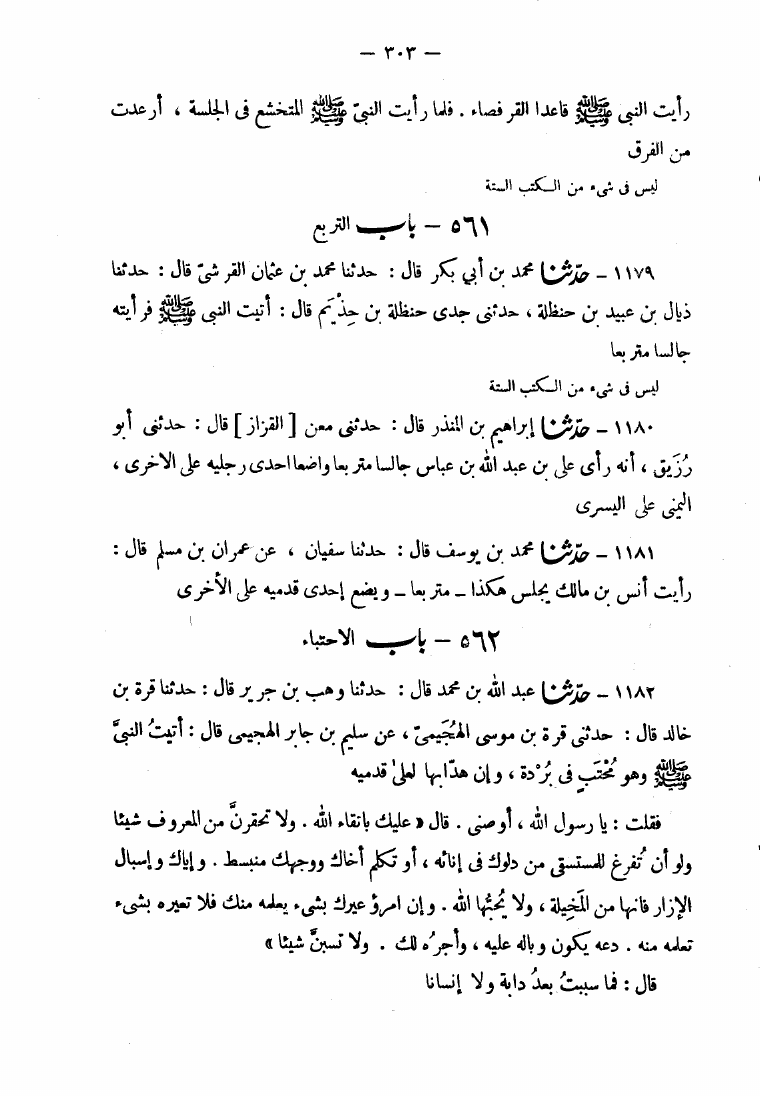 — ٣٠٣ —
رأيت النبى ﷺ قاعدا القرفصاء . فلما رأيت النبىّ ﷺ المتخشع فى الجلسة ، أرعدت
من الفرق
ليس فى شىء من الكتب الستة
٥٦١ — باب التربع
١١٧٩ – حدّثنا محمد بن أبي بكر قال : حدثنا محمد بن عثمان القرشىّ قال : حدثنا
ذيال بن عبيد بن حنظلة ، حدثنى جدى حنظلة بن حِذْيَم قال : أتيت النبى ﷺ فرأيته
جالسا متربعا
ليس فى شىء من الكتب الستة
١١٨٠ – حدّثنا إبراهيم بن المنذر قال : حدثنى معن [ القزاز ] قال : حدثنى أبو
رُزَيق ، أنه رأى على بن عبد الله بن عباس جالسا متربعا واضعا احدى رجليه على الاخرى ،
اليمنى على اليسرى
١١٨١ – حدّثنا محمد بن يوسف قال : حدثنا سفيان ، عن عمران بن مسلم قال :
رأيت أنس بن مالك يجلس هكذا – متربعا – ويضع إحدى قدميه على الأخرى
٥٦٢ — باب الاحتباء
١١٨٢ – حدّثنا عبد الله بن محمد قال : حدثنا وهب بن جرير قال : حدثنا قرة بن
خالد قال : حدثنى قرة بن موسى الهُجَيمىّ ، عن سليم بن جابر الهجيمى قال : أتيتُ النبىَّ
ﷺ وهو مُحْتَبٍ فى بُرْدة ، وإن هدّابها لعلىٰ قدميه
فقلت : يا رسول الله ، أوصنى . قال « عليك باتقاء الله . ولا تحقرنَّ من المعروف شيئا
ولو أن تُفرغ للمستسقى من دلوك فى إنائه ، أو تكلم أخاك ووجهك منبسط . وإياك وإسبال
الإزار فانها من المَخِيلة ، ولا يُحبُّها الله . وإن امرؤ عيرك بشىء يعلمه منك فلا تعيره بشىء
تعلمه منه . دعه يكون وباله عليه ، وأجرُه لك . ولا تسبنَّ شيئا »
قال : فما سببتُ بعدُ دابة ولا إنسانا